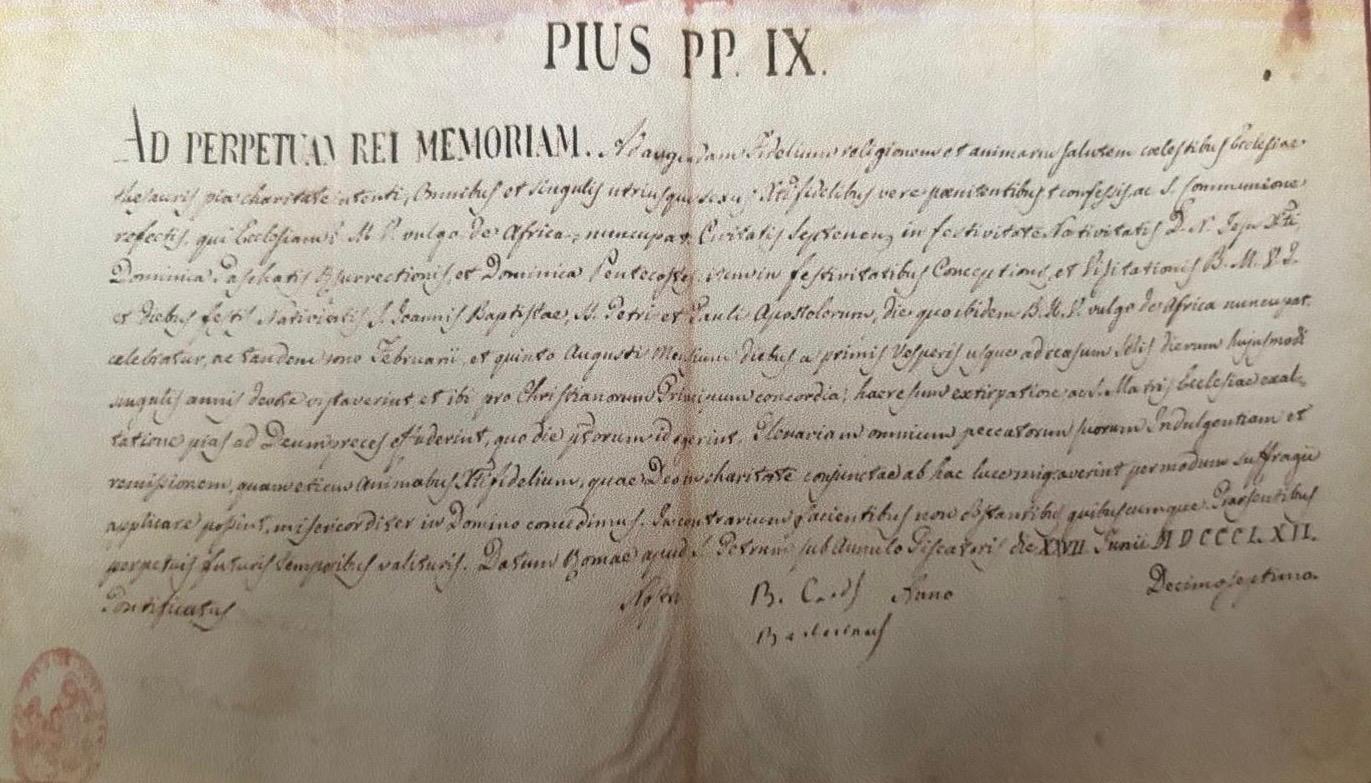 PIUS PP. IX.
AD PERPETUAM REI MEMORIAM. Ad augendam Fidelium religionem et animarum salutem cœlestibus Ecclesiae
thesauris pia charitate intenti, omnibus et singulis utriusque sexus Xtifidelibus vere pœnitentibus et confessis ac S. Communione
refectis, qui Ecclesiam B. M. V. vulgo de Africa nuncupat. Civitatis Septenen, in festivitate Nativitatis D. N. Jesu Xti,
Dominica Paschatis Resurrectionis, et Dominica Pentecostes, necnon festivitatibus Conceptionis, et Visitationis B. M. V. I.
et diebus festis Nativitatis S. Joannis Baptistae, SS. Petri et Pauli Apostolorum, die quo ibidem B. M. V. vulgo de Africa nuncupat.
celebratur, ac tandem nono Februarii, et quinto Augusti Mensium diebus a primis Vesperis usque ad occasum Solis dierum hujusmodi
singulis annis devote visitaverint, et ibi pro Christianorum Principum concordia, haeresum extirpatione ac S. Matris Ecclesiae exal-
tatione pias ad Deum preces effuderint, quo die ptorum id egerint, Plenariam omnium peccatorum suorum Indulgentiam et
remissionem, quam etiam Animabus Xtifidelium, quae Deo in charitate conjunctae ab hac luce migraverint per modum suffragii
applicare possint, misericorditer in Domino concedimus. In contrarium facientibus non obstantibus quibuscumque. Praesentibus
perpetuis futuris temporibus valituris. Datum Romae apud S. Petrum sub Annulo Piscatoris die XXVII Junii MDCCCLXII.
Pontificatus Nostri B. Card. Anno Decimoseptimo.